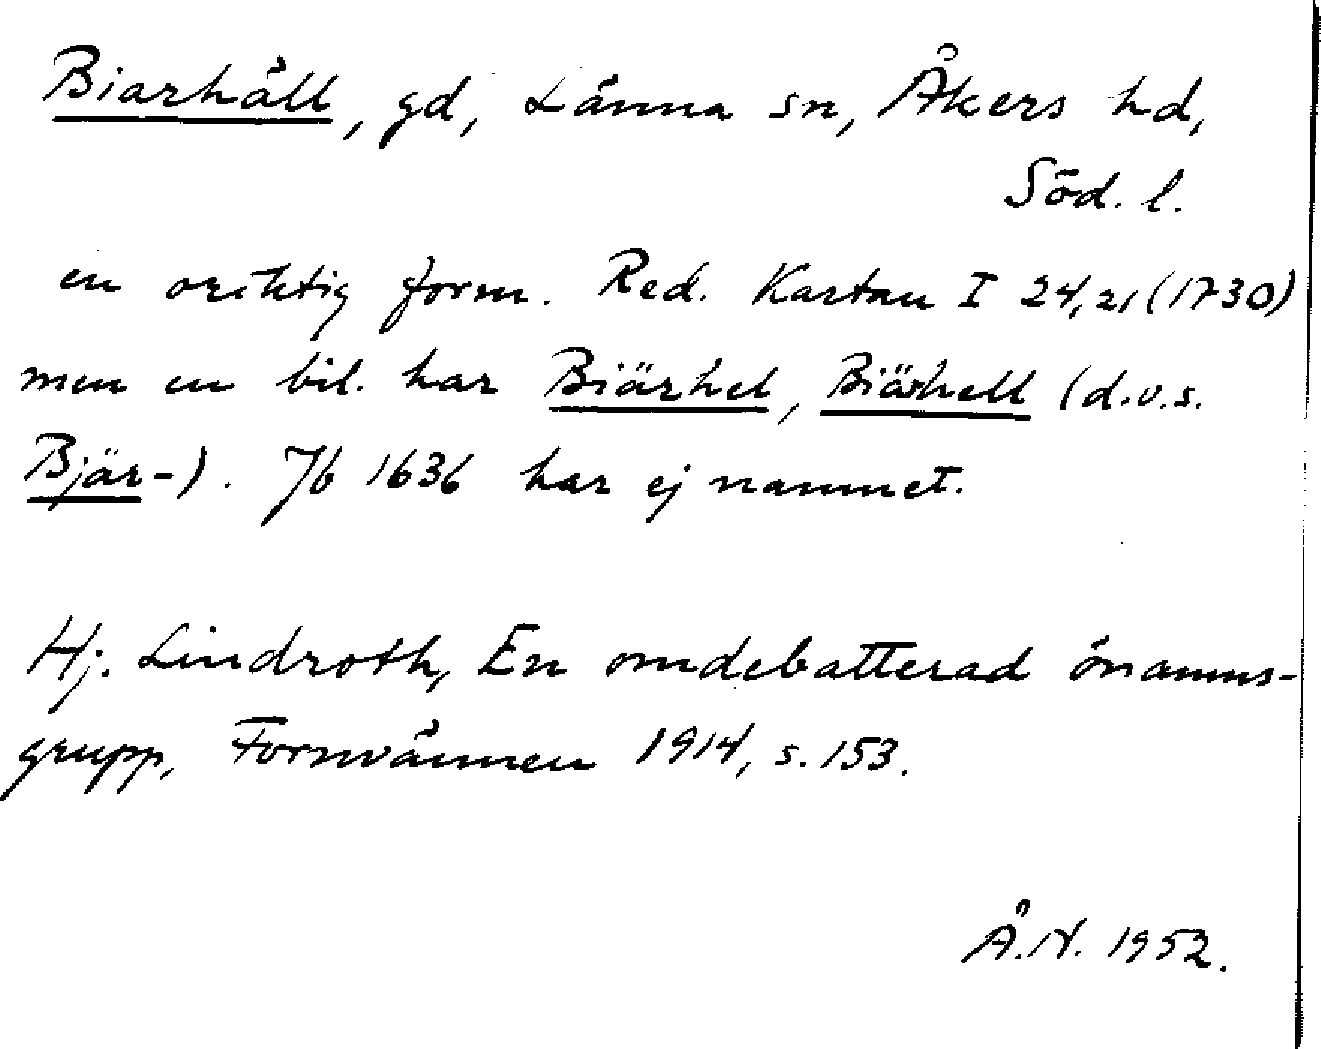 Biarhäll, gd, Länna sn, Åkers hd,
Söd. l.
en oriktig form. Red. Kartan I 24,21 (1730)
men en bil. har Biärhel, Biärhell (d.v.s.
Bjär-). Jb 1636 har ej namnet.
Hj. Lindroth, En omdebatterad önamns-
grupp, Fornvännen 1914, s. 153.
Å.N. 1952.